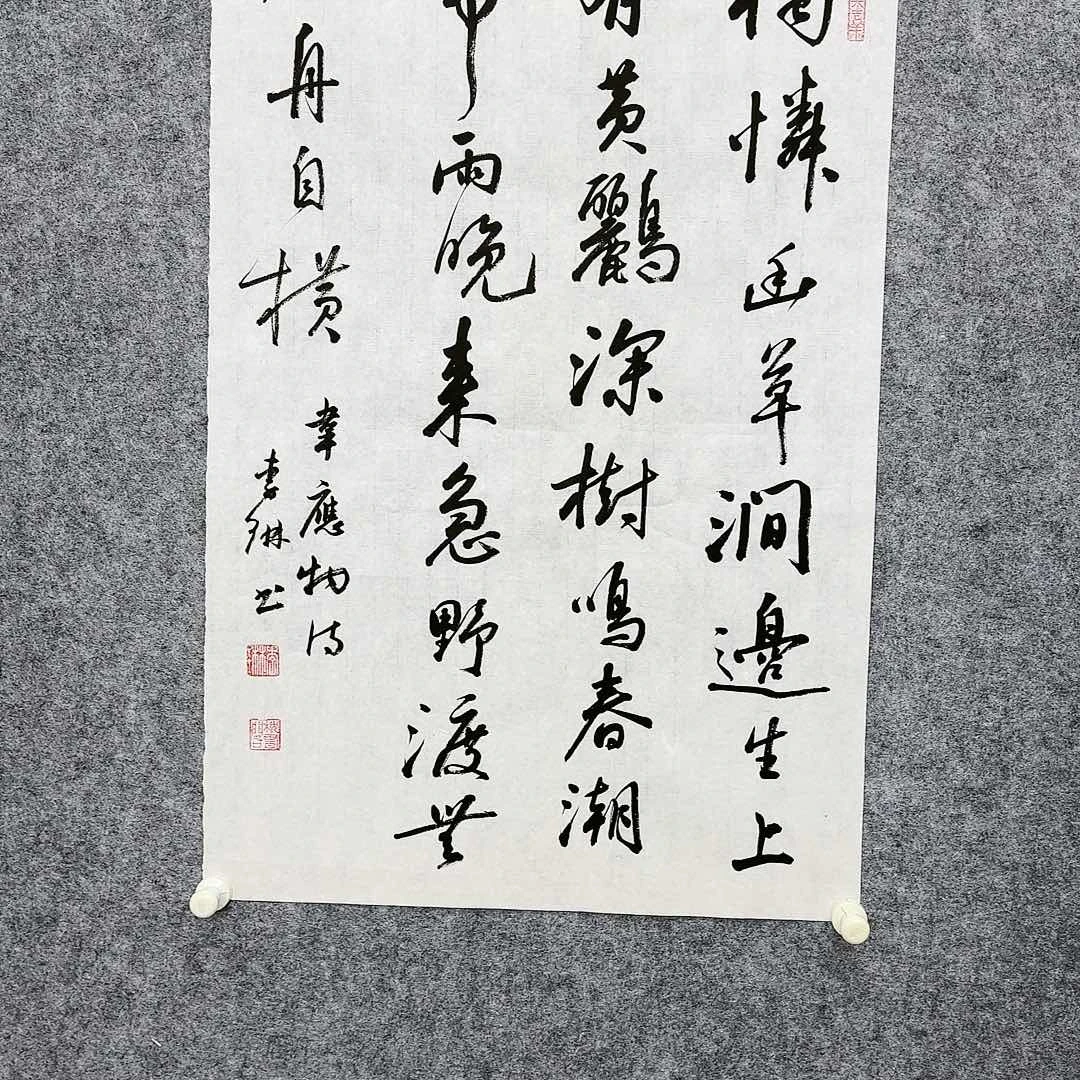 獨憐幽草澗邊生上
有黃鸝深樹鳴春潮
雨晚來急野渡無
舟自橫
韋應物詩
李琳书